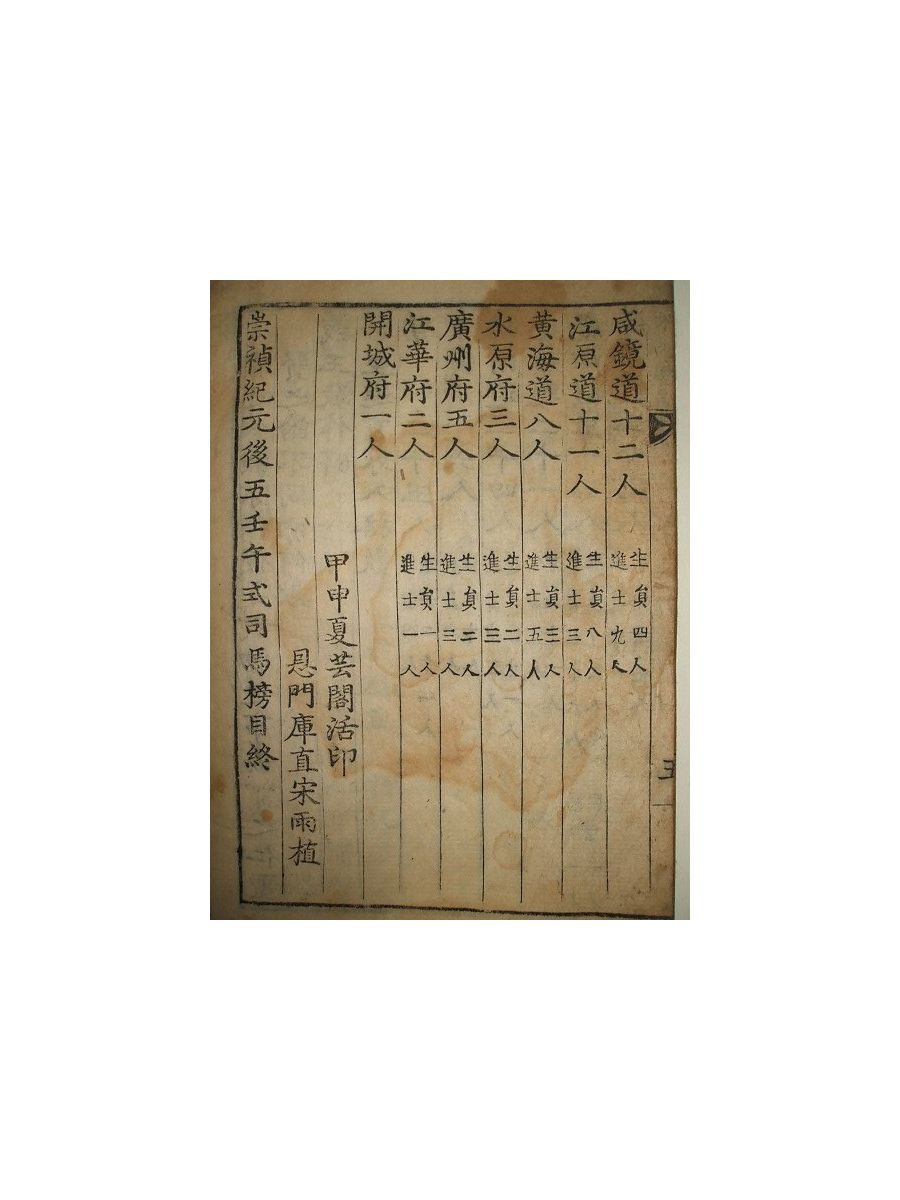 咸鏡道十二人
生員四人
進士九人
江原道十一人
生員八人
進士三人
黄海道八人
生員三人
進士五人
水原府三人
生員二人
進士三人
廣州府五人
生員二人
進士三人
江華府二人
生員一人
進士一人
開城府一人
甲申夏芸閣活印
恩門庫直宋雨植
崇禎紀元後五壬午式司馬榜目終